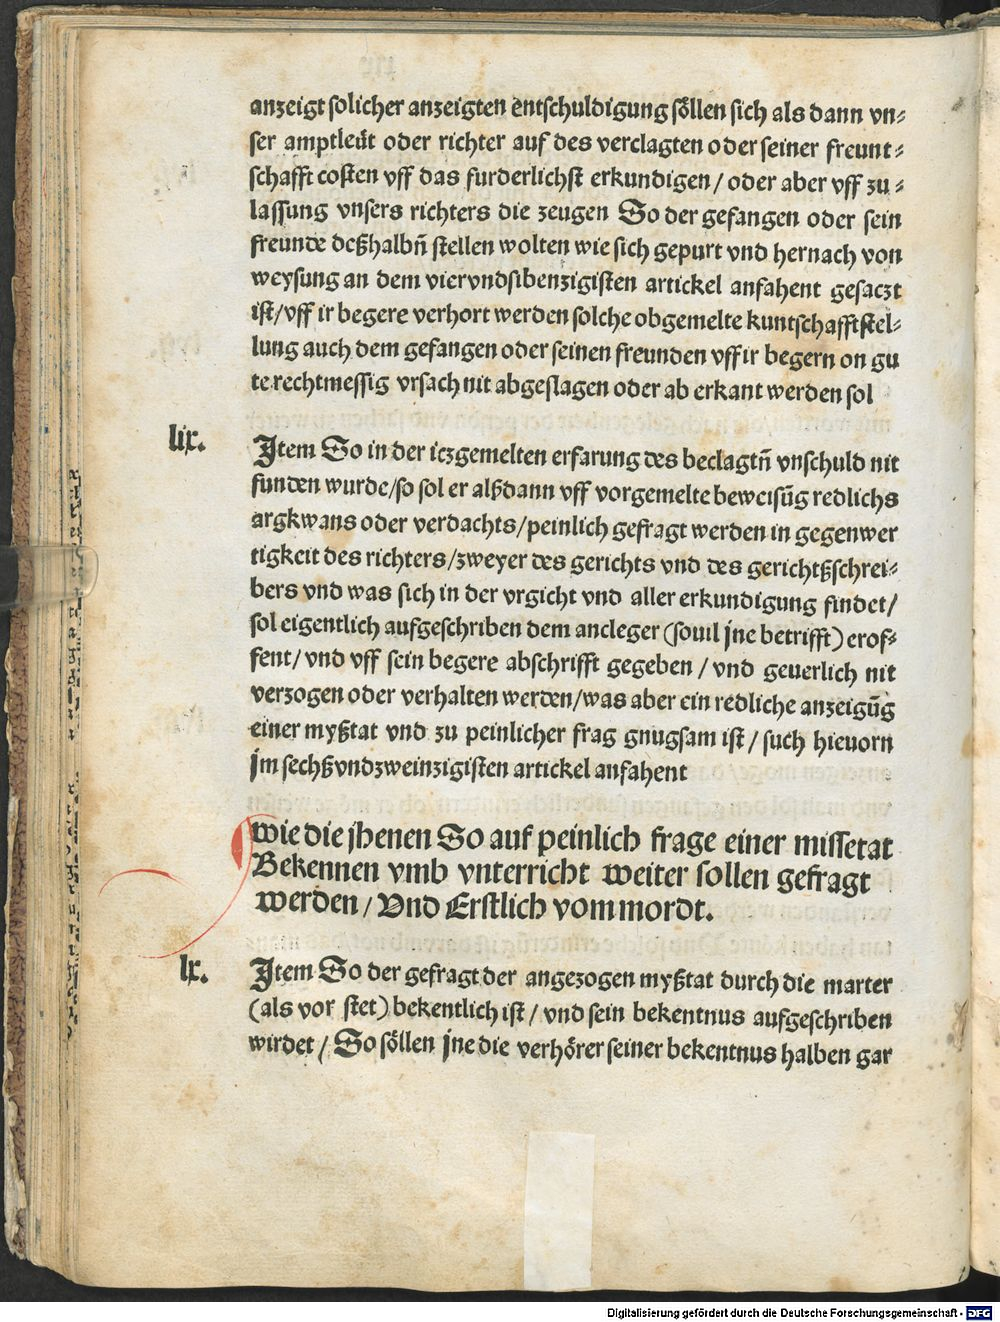 anzeigt solicher anzeigten entschuldigung söllen sich als dann vn⸗
ser amptleüt oder richter auf des verclagten oder seiner freunt⸗
schafft costen vff das furderlichst erkundigen / oder aber vff zu⸗
lassung vnsers richters die zeugen So der gefangen oder sein
freunde deßhalbn̄ stellen wolten wie sich gepurt vnd hernach von
weysung an dem viervndsibenzigisten artickel anfahent gesaczt
ist/vff ir begere verhort werden solche obgemelte kuntschafftstel⸗
lung auch dem gefangen oder seinen freunden vff ir begern on gu
te rechtmessig vrsach nit abgeslagen oder ab erkant werden sol
lix. Item So in der iczgemelten erfarung des beclagtn̄ vnschuld nit
funden wurde/so sol er alßdann vff vorgemelte beweisūg redlichs
argkwans oder verdachts/peinlich gefragt werden in gegenwer
tigkeit des richters/zweyer des gerichts vnd des gerichtßschrei⸗
bers vnd was sich in der vrgicht vnd aller erkundigung findet/
sol eigentlich aufgeschriben dem ancleger (souil jne betrifft) erof⸗
fent/vnd vff sein begere abschrifft gegeben / vnd geuerlich nit
verzogen oder verhalten werden/was aber ein redliche anzeigūg
einer myßtat vnd zu peinlicher frag gnugsam ist / such hieuorn
jm sechßvndzweinzigisten artickel anfahent
wie die jhenen So auf peinlich frage einer missetat
Bekennen vmb vnterricht weiter sollen gefragt
werden / Vnd Erstlich vom mordt.
lx. Item So der gefragt der angezogen myßtat durch die marter
(als vor stet) bekentlich ist / vnd sein bekentnus aufgeschriben
wirdet / So söllen jne die verhörer seiner bekentnus halben gar
Digitalisierung gefördert durch die Deutsche Forschungsgemeinschaft - DFG